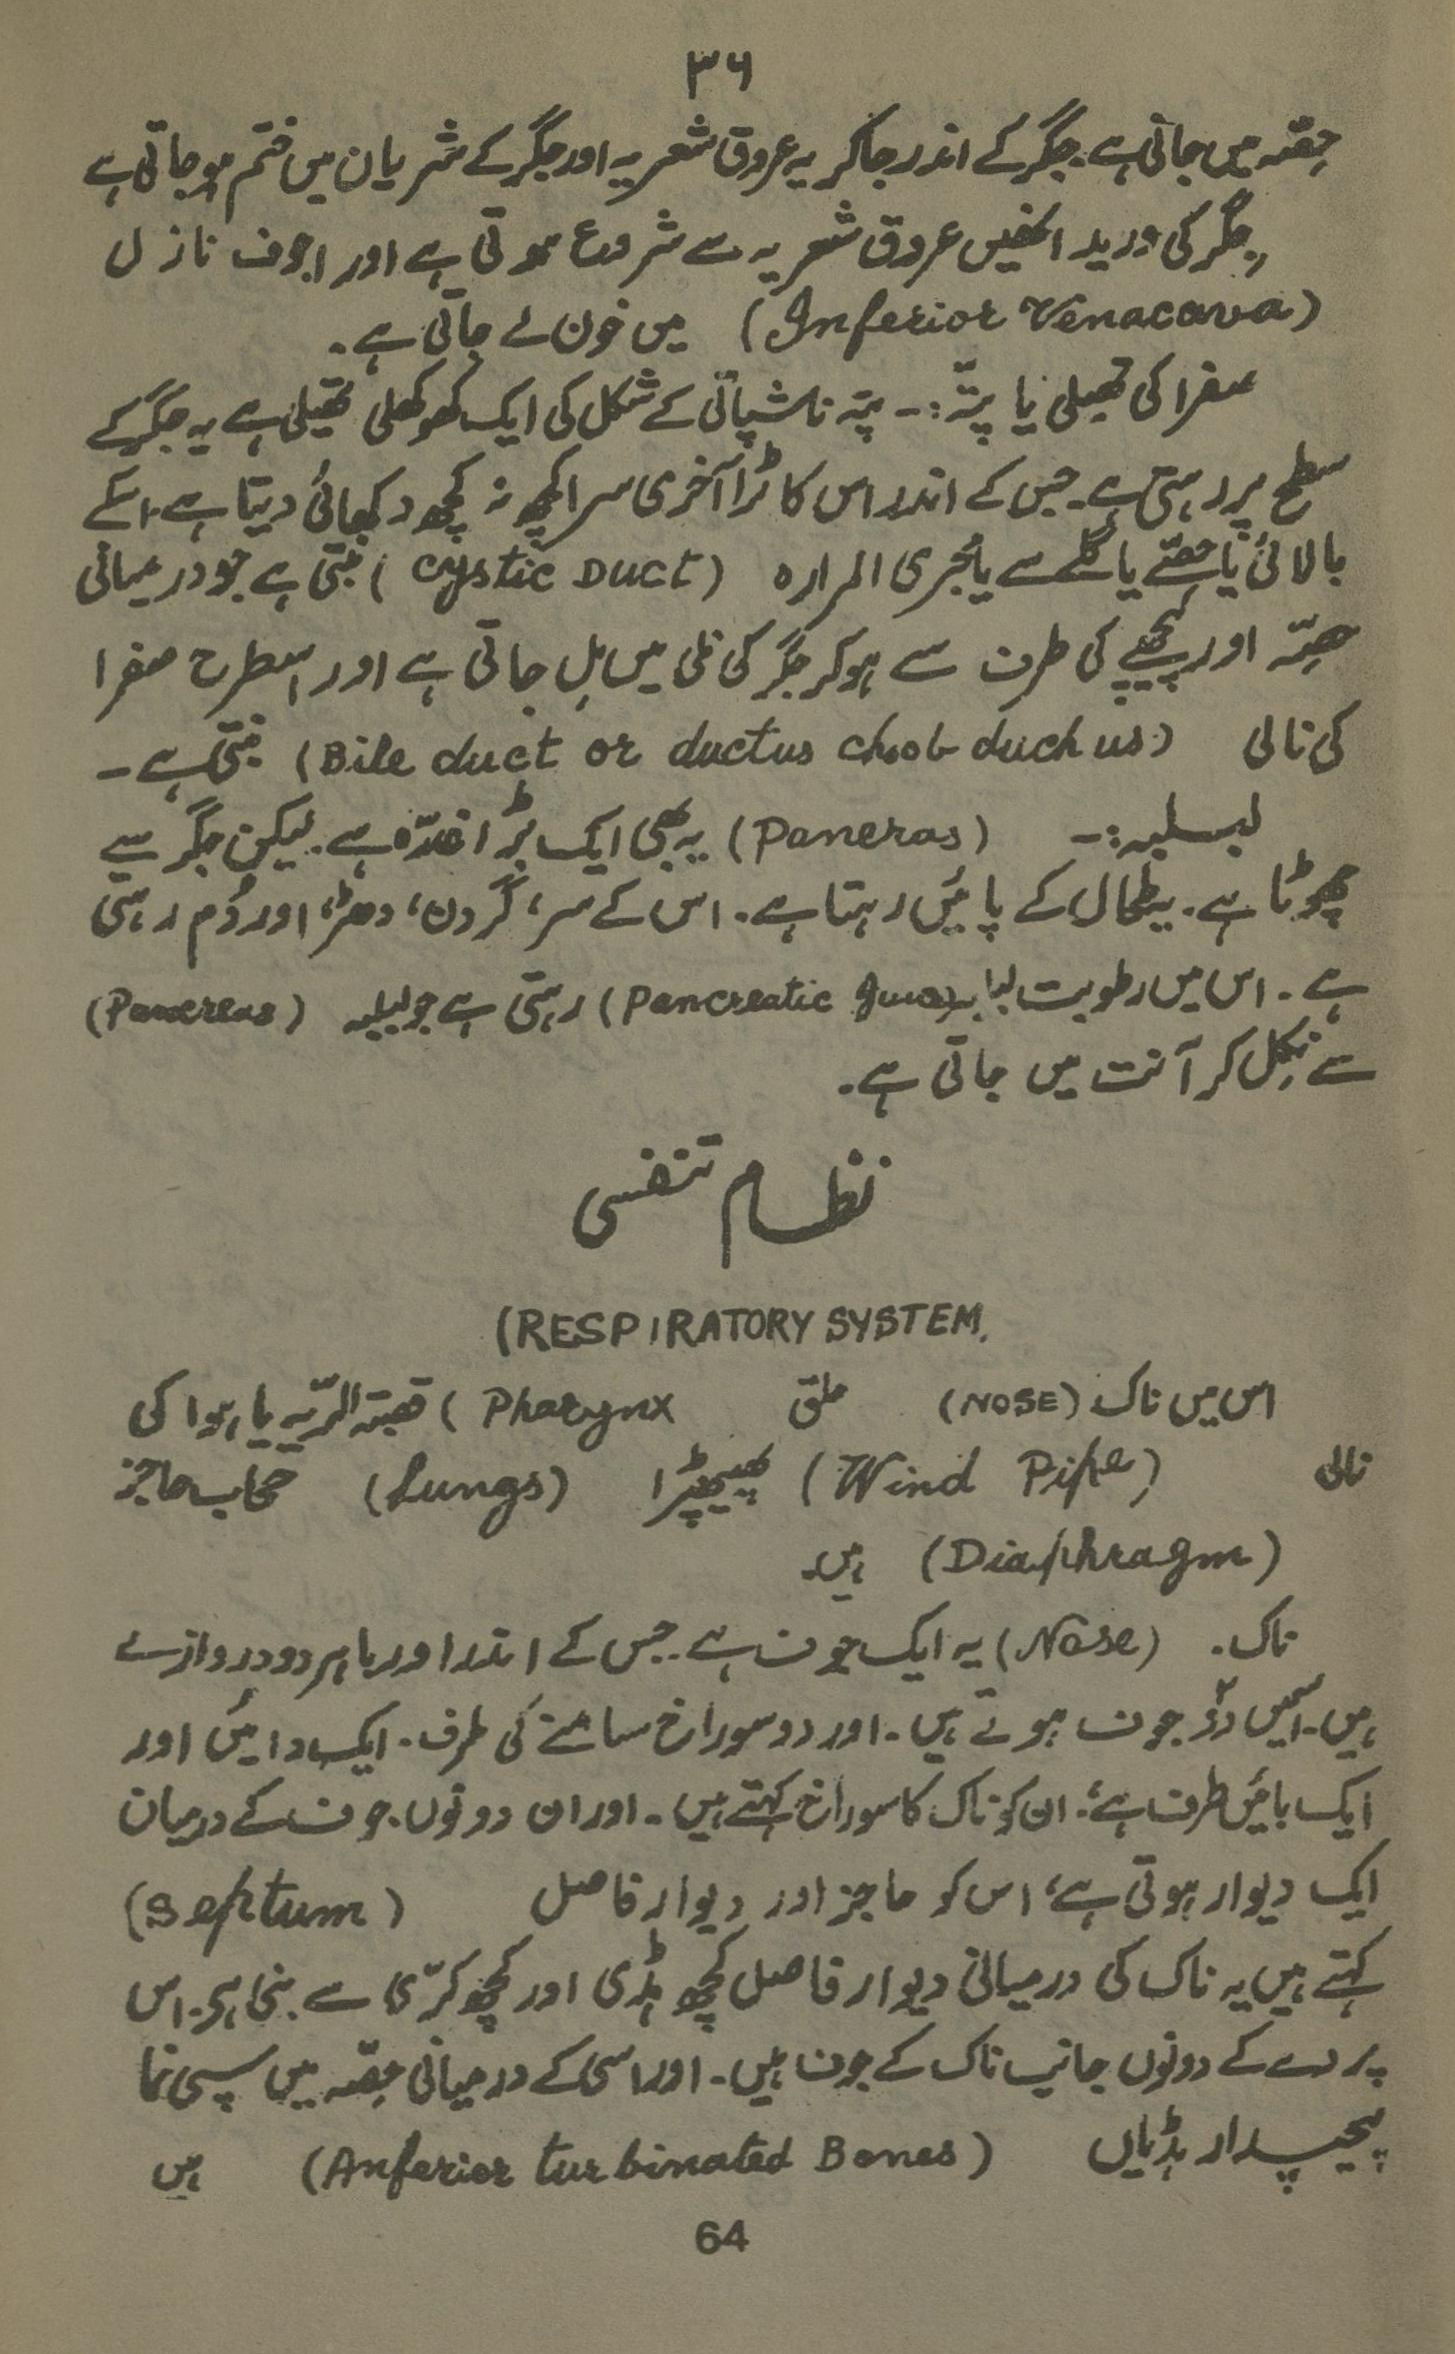 ۳۶
حصّہ میں جاتی ہے۔ جگر کے اندر جاکر یہ عروق شعریہ اور جگر کے شریان میں ختم ہو جاتی ہے
جگر کی ورید انھیں عروق شعریہ سے شروع ہوتی ہے اور اجوف نازل
(Inferior Venacava) میں خون لے جاتی ہے۔
صفرا کی تھیلی یا پتّہ :۔ پتہ ناشپاتی کے شکل کی ایک کھوکھلی تھیلی ہے یہ جگر کے
سطح پر رہتی ہے۔ جس کے اندر اس کا بڑا آخری سرا کچھ نہ کچھ دکھائی دیتا ہے۔ اسکے
بالائی یا حصّے یا گلے سے یا مجری المرارہ (Cystic Duct) بنتی ہے جو درمیانی
حصّہ اور پیچھے کی طرف سے ہوکر جگر کی نلی میں مل جاتی ہے اور اسطرح صفرا
کی نالی (Bile duct or ductus choob duchus) بنتی ہے۔
لبلبہ :۔ (Paneras) یہ بھی ایک بڑا غدّہ ہے۔ لیکن جگر سے
چھوٹا ہے۔ یہ طحال کے پائیں رہتا ہے۔ اس کے سر، گردن، دھڑ، اور دُم رہتی
ہے۔ اس میں رطوبت لبلبہ (Pancreatic Juice) رہتی ہے جو لبلبہ (Panereas)
سے نکل کر آنت میں جاتی ہے۔
نظام تنفسی
(RESPIRATORY SYSTEM.
اس میں ناک (NOSE) حلق (Pharynx قصبتہ الرّیہ یا ہوا کی
نالی (Wind Pipe) پھیپھڑا (Lungs) حجاب حاجز
(Diaphragm) ہیں۔
ناک۔ (Nose) یہ ایک جوف ہے۔ جس کے اندر اور باہر دو دروازے
ہیں۔ اسمیں دو جوف ہوتے ہیں۔ اور دو سوراخ سامنے کی طرف۔ ایک دائیں اور
ایک بائیں طرف ہے۔ ان کو ناک کا سوراخ کہتے ہیں۔ اور ان دونوں جوف کے درمیان
ایک دیوار ہوتی ہے، اس کو حاجز اور دیوار فاصل (Septum)
کہتے ہیں یہ ناک کی درمیانی دیوار فاصل کچھ ہڈی اور کچھ کرّی سے بنی ہی۔ اس
پردے کے دونوں جانب ناک کے جوف ہیں۔ اور اسی کے درمیانی حصّہ میں سیپی نما
پیچدار ہڈیاں (Anferior turbinated Bones) ہیں
64